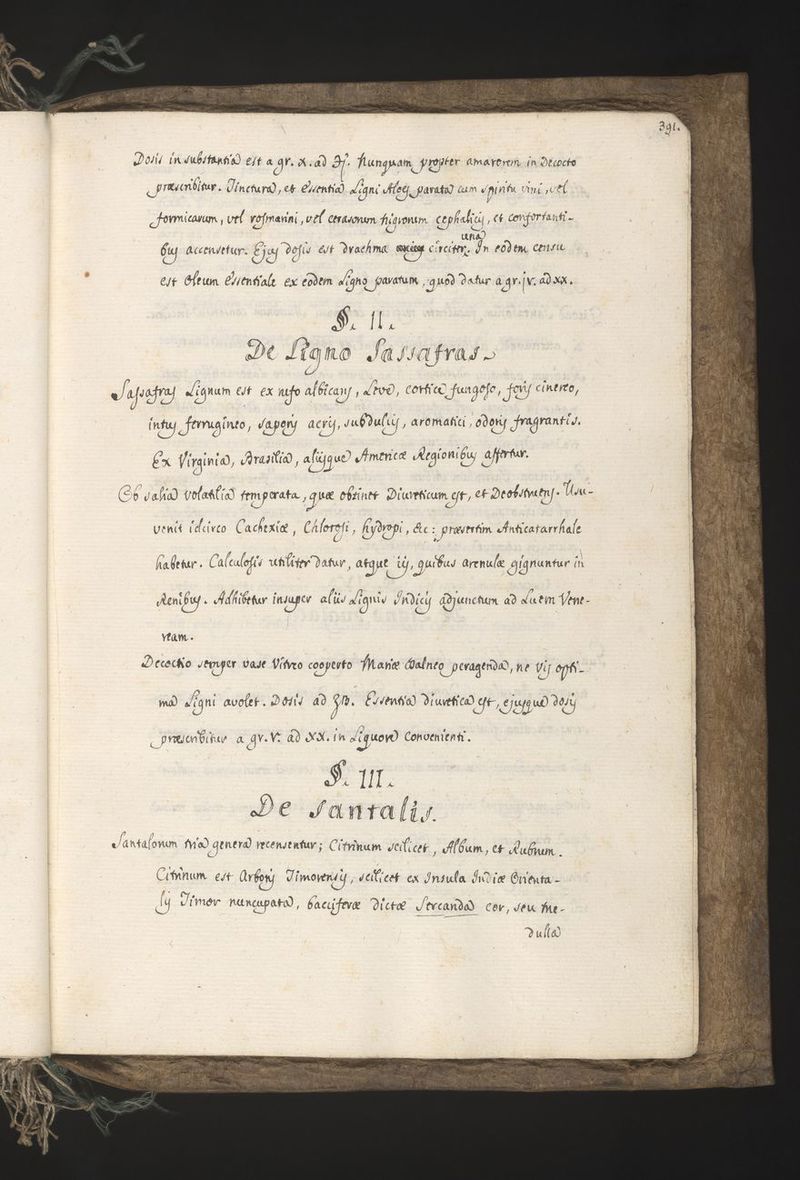 391.
Dosis in substantia est a gr. x. ad ʒſ. Nunquam propter amarorem in Decocto
præscribitur. Tinctura, et Essentia Ligni Aloes parata cum spiritu vini, vel
formicarum, vel rosmarini, vel cerasorum nigrorum cephalicis, et confortanti-
bus accensetur. Ejus dosis est drachma una circiter. In eodem censu
est Oleum Essentiale ex eodem Ligno paratum, quod datur a gr. jv. ad xx.
§. II.
De Ligno Sassafras
Sassafras Lignum est ex rufo albicans, Leve, cortice fungoso, foris cinereo,
intus ferrugineo, saporis acris, subdulcis, aromatici, odoris fragrantis.
Ex Virginia, Brasilia, aliisque Americæ Regionibus affertur.
Ob salia volatilia temperata, quæ obtinet Diureticum est, et Deobstruens. Usu-
venit idcirco Cachexiæ, Chlorosi, hydropi, &c: præsertim Anticatarrhale
habetur. Calculosis utiliter datur, atque iis, quibus arenulæ gignuntur in
Renibus. Adhibetur insuper aliis Lignis Indicis adjunctum ad Luem Vene-
ream.
Decoctio semper vase Vitreo cooperto Mariæ Balneo peragenda, ne Vis opti-
ma Ligni avolet. Dosis ad ʒß. Essentia diuretica est, ejusque dosis
præscribitur a gr. V. ad XX. in Liquore convenienti.
§. III.
De Santalis.
Santalorum tria genera recensentur; Citrinum scilicet, Album, et Rubrum.
Citrinum est Arboris Timorensis, scilicet ex Insula Indiæ Orienta-
lis Timor nuncupata, bacciferæ dictæ Sercanda cor, seu me-
dulla